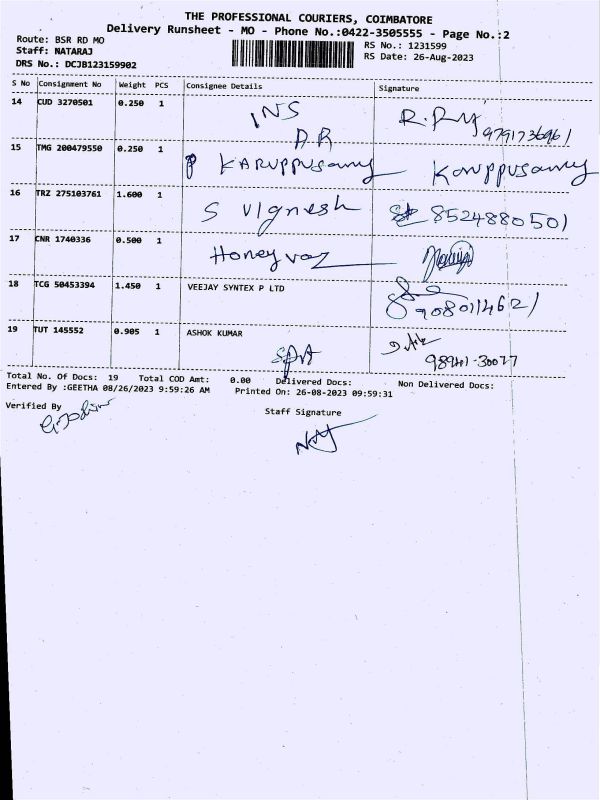 THE PROFESSIONAL COURIERS, COIMBATORE
Delivery Runsheet - MO - Phone No.:0422-3505555 - Page No.:2
Route: BSR RD MO
RS No.: 1231599
Staff: NATARAJ
RS Date: 26-Aug-2023
DRS No.: DCJB123159902
S No Consignment No Weight PCS Consignee Details Signature
14 CUD 3270501 0.250 1 INS
D.R
15 TMG 200479550 0.250 1 KARUPPUSAMY Karuppusamy
16 TRZ 275103761 1.600 1 S Vignesh 8524880501
17 CNR 1740336 0.500 1
18 TCG 50453394 1.450 1 VEEJAY SYNTEX P LTD 9080114621
19 TUT 145552 0.905 1 ASHOK KUMAR
98941-30077
Total No. Of Docs: 19 Total COD Amt: 0.00 Delivered Docs: Non Delivered Docs:
Entered By :GEETHA 08/26/2023 9:59:26 AM Printed On: 26-08-2023 09:59:31
Verified By
Staff Signature